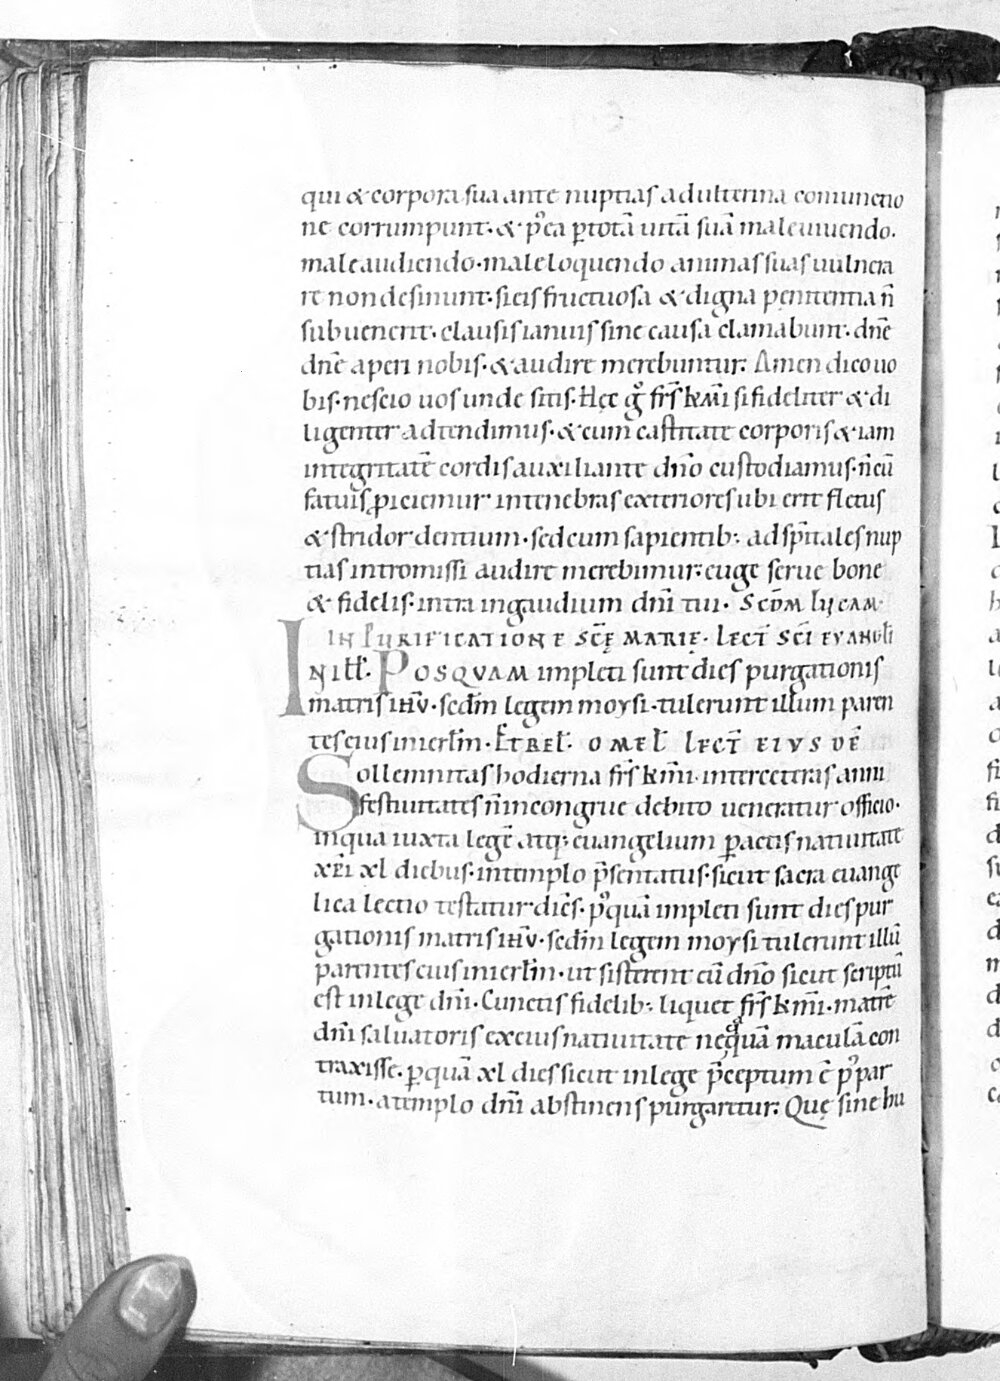 qui & corpora sua ante nuptias adulterina comunctio
ne corrumpunt · & p̾ea ꝑ totā uitā suā male uiuendo ·
male audiendo · male loquendo animas suas uulnera
re non desinunt · si eis fructuosa & digna penitentia n̄
subuenerit · clausis ianuis sine causa clamabunt · dn̄e
dn̄e aperi nobis · & audire merebuntur : Amen dico uo
bis · nescio uos unde sitis · Hęc g̊ fr̄s km̄i si fideliter & di
ligenter adtendimus · & cum castitate corporis & iam
integritatē cordis auxiliante dn̄o custodiamus · n̄ cū
fatuis ꝓiciemur in tenebras exteriores ubi erit fletus
& stridor dentium · sed cum sapientib; ad sp̄itales nup
tias intromissi audire merebimur : euge serue bone
& fidelis · intra in gaudium dn̄i tui · SCD̄M LUCAM
IN PURIFICATIONE SC̄Ę MARIĘ · LECT̄ SC̄I EVANGLĪ
IN ILL̄ · POSQVAM impleti sunt dies purgationis
matris ih̄v · sed̄m legem moysi · tulerunt illum paren
tes eius in ierl̄m · ET REL̄ · OMEL̄ LECT̄ EIUS DĒ
Sollemnitas hodierna fr̄s km̄i · inter ceteras anni
festiuitates n̄ incongrue debito ueneratur officio ·
in qua iuxta legē atq; euangelium ꝑactis natiuitate
xp̄i xl diebus · in templo p̄sentatus · sicut sacra euange
lica lectio testatur dicēs · p̾quā impleti sunt dies pur
gationis matris ih̄v · sed̄m legem moysi tulerunt illū
parentes eius in ierl̄m · ut sisterent eū dn̄o sicut scriptū
est in lege dn̄i · Cunctis fidelib; liquet fr̄s km̄i · matrē
dn̄i saluatoris ex eius natiuitate neqͣquā maculā con
traxisse · ꝑ quā xl dies sicut in lege p̄ceptum ē p̾ par
tum · a templo dn̄i abstinens purgaretur : Quę sine hu